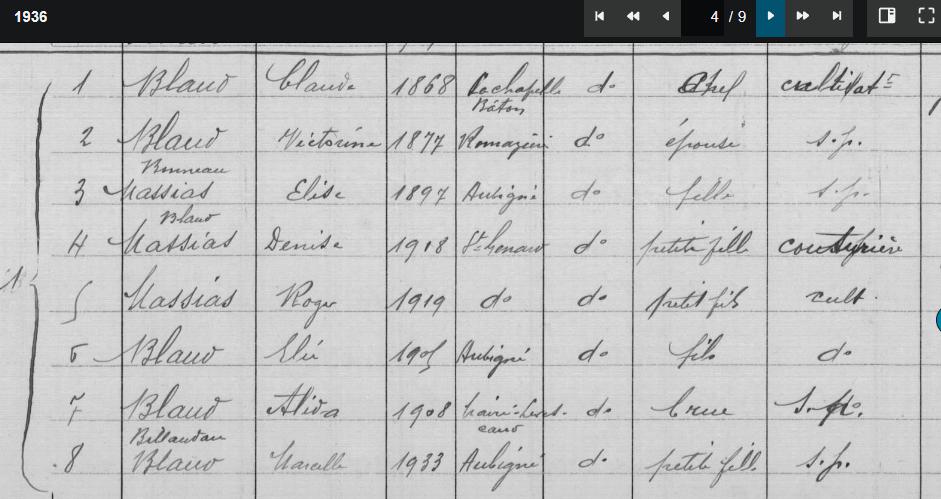 1936
4 / 9
1 Blaud Claude 1868 Lachapelle do Chef cultivatr
Bâton
2 Blaud Victorine 1877 Romazière do épouse s.p.
Bonneau
3 Massias Elise 1897 Aubigné do fille s.p.
Blaud
4 Massias Denise 1918 do petite fille couturière
5 Massias Roger 1919 do do petit fils cult.
6 Blaud Elie 1905 Aubigné do fils do
7 Blaud Alida 1908 do brue s.p.
Billaudau
8 Blaud Marcelle 1933 Aubigné do petite fille s.p.